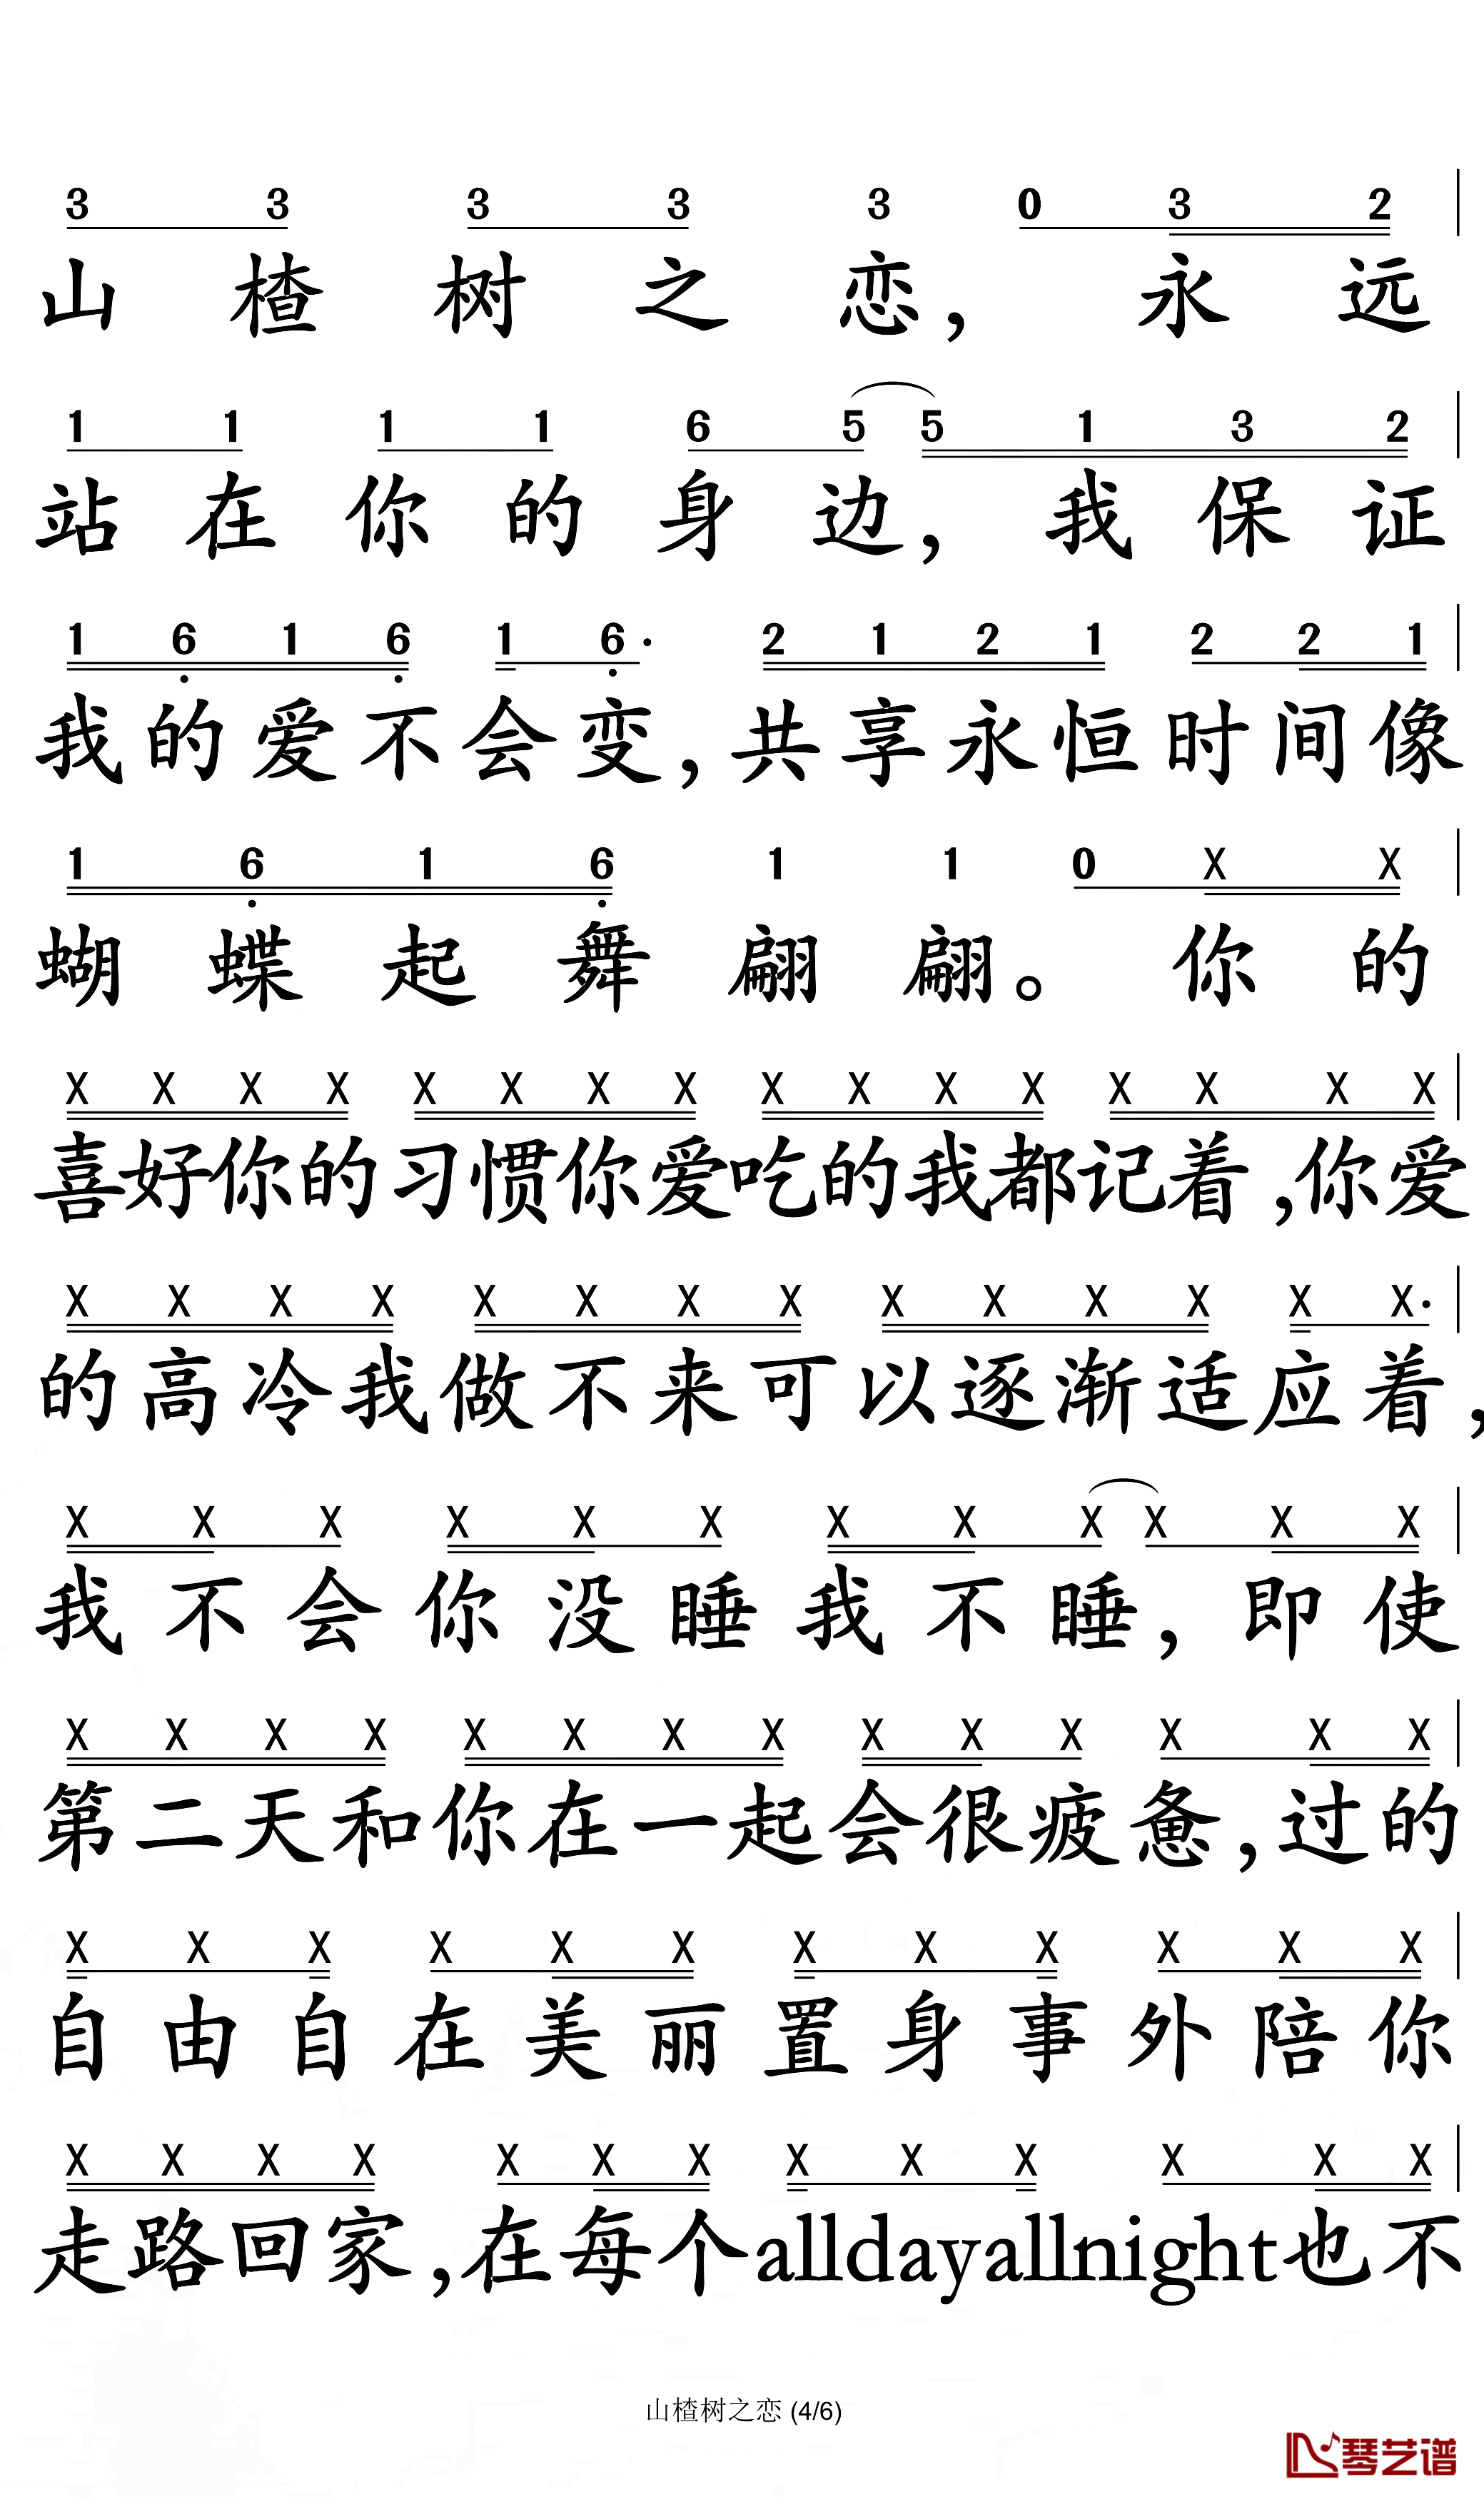 3 3 3 3 3 0 3 2
山楂树之恋，永远
1 1 1 1 6 5 5 1 3 2
站在你的身边，我保证
1 6 1 6 1 6· 2 1 2 1 2 2 1
我的爱不会变，共享永恒时间像
1 6 1 6 1 1 0 X X
蝴蝶起舞翩翩。你的
X X X X X X X X X X X X X X X X
喜好你的习惯你爱吃的我都记着，你爱
X X X X X X X X X X X X X X·
的高冷我做不来可以逐渐适应着，
X X X X X X X X X X X X
我不会你没睡我不睡，即使
X X X X X X X X X X X X X X
第二天和你在一起会很疲惫，过的
X X X X X X X X X X X X
自由自在美丽置身事外陪你
X X X X X X X X X X X X X
走路回家，在每个alldayallnight也不
山楂树之恋 (4/6)
琴艺谱